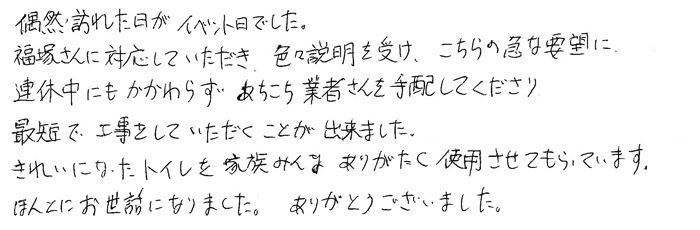 偶然訪れた日がイベント日でした。
福塚さんに対応していただき、色々説明を受け、こちらの急な要望に、
連休中にもかかわらず あちこち業者さんを手配してくださり
最短で工事をしていただくことが出来ました。
きれいになったトイレを家族みんな ありがたく使用させてもらっています。
ほんとにお世話になりました。 ありがとうございました。